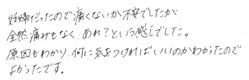 妊婦だったので痛くないか不安でしたが
全然痛みもなく、あれ？という感じでした。
原因もわかり、何に気をつければいいのかわかったので
よかったです。